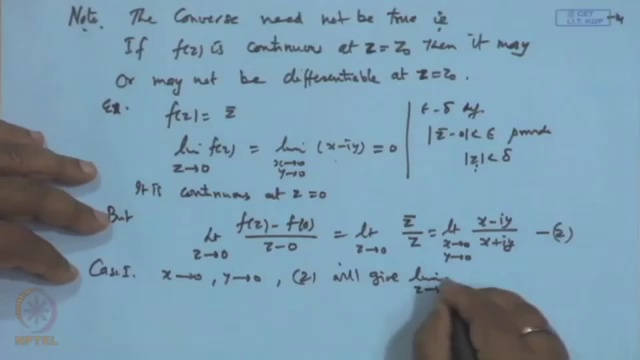 Note. The Converse need not be true ie
If f(z) is continuous at z=z₀ then it may
or may not be differentiable at z=z₀.
Ex. f(z) = z̄
lim z→0 f(z) = lim x→0 y→0 (x-iy) = 0
ε-δ def.
|z̄-0|<ε provide
|z|<δ
It is continuous at z=0
But lt z→0 f(z)-f(0)/z-0 = lt z→0 z̄/z = lt x→0 y→0 x-iy/x+iy —(2)
Case I. x→0, y→0, (2) will give lim z→
© CET
I.I.T. KGP
NPTEL